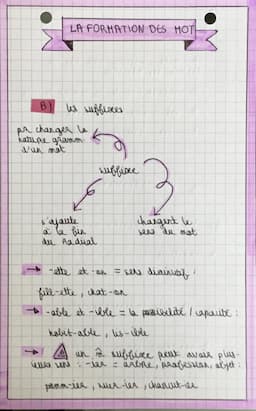 LA FORMATION DES MOT
B) les suffixes
pr changer la
nature gramm
d'un mot
suffixe
s'ajoute
à la fin
du radical
changent le
sens du mot
→ -ette et -on = sens diminutif :
fill-ette, chat-on
→ -able et -ible = la possibilité / capacité :
habit-able, lis-ible
→ ⚠ un suffixe peut avoir plus-
ieurs sens : -ier = arbre, profession, objet :
pomm-ier, charcut-ier